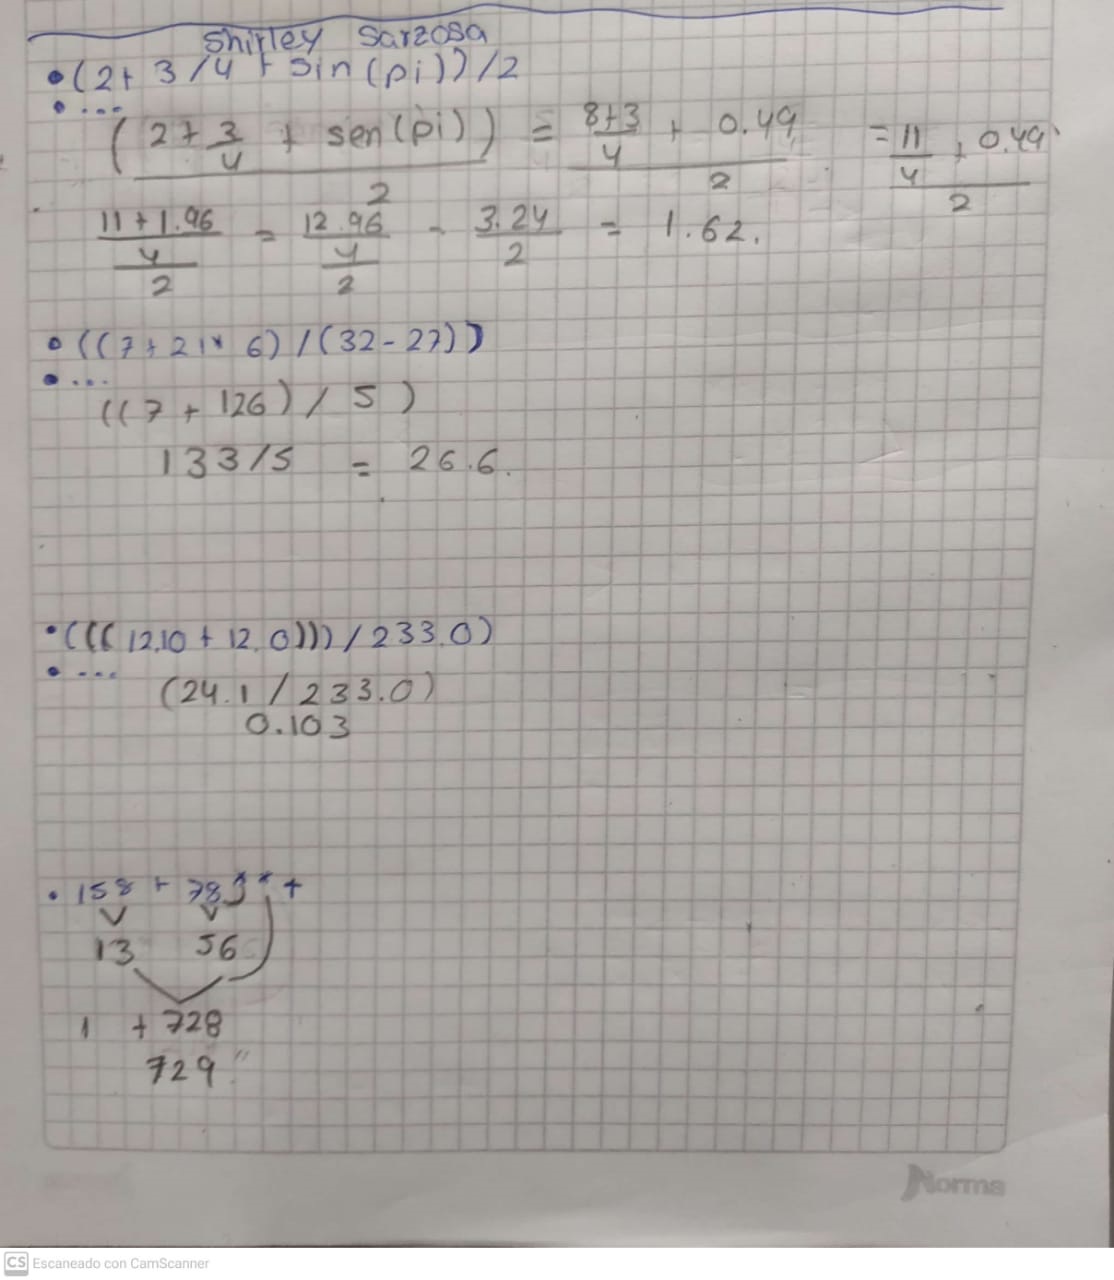 Shirley Sarzosa
•(2+ 3/4 + sin(pi))/2
• ...
(2+3/4 + sen(pi))/2 = (8+3/4 + 0.49)/2 = (11/4 + 0.49)/2
(11+1.96/4)/2 = (12.96/4)/2 - 3.24/2 = 1.62.
• ((7+21* 6) / (32-27))
• ...
((7 + 126) / 5 )
133/5 = 26.6.
•((( 12.10 + 12.0))) / 233.0)
• ...
(24.1 / 233.0)
0.103
• 158 + 78 * * +
13 56
1 + 728
729 "
Norma
CS Escaneado con CamScanner